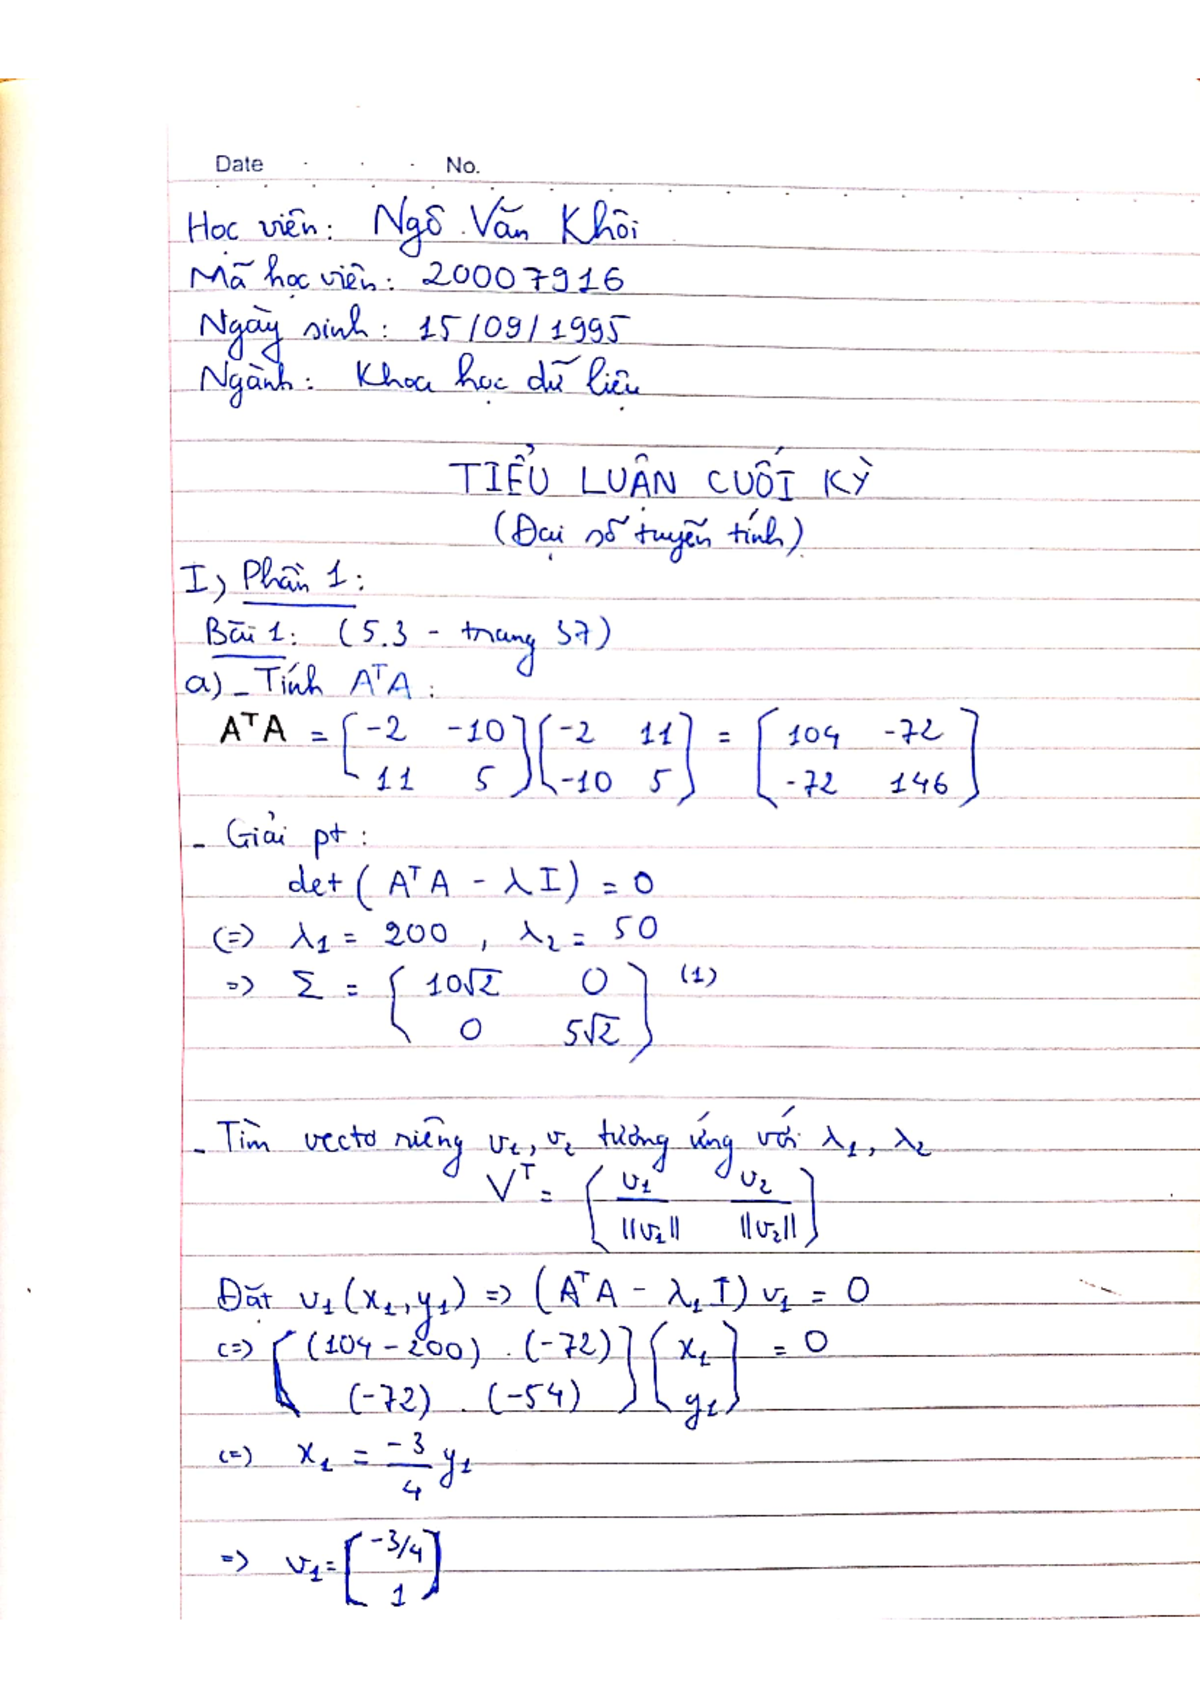 Date . . . No.
Học viên: Ngô Văn Khôi
Mã học viên: 20007916
Ngày sinh: 15/09/1995
Ngành: Khoa học dữ liệu
TIỂU LUẬN CUỐI KỲ
(Đại số tuyến tính)
I) Phần 1:
Bài 1: (5.3 - trang 37)
a) - Tính AᵀA:
AᵀA = [-2 -10; 11 5] [-2 11; -10 5] = [104 -72; -72 146]
- Giải pt:
det(AᵀA - λI) = 0
(=) λ1 = 200, λ2 = 50
=> Σ = [10√2 0; 0 5√2] (1)
- Tìm vectơ riêng v1, v2 tương ứng với λ1, λ2
Vᵀ = [v1/||v1|| v2/||v2||]
Đặt v1(x1, y1) => (AᵀA - λ1I) v1 = 0
(=) [(104 - 200) . (-72); (-72) . (-54)] [x1; y1] = 0
(=) x1 = -3/4 y1
=> v1 = [-3/4; 1]